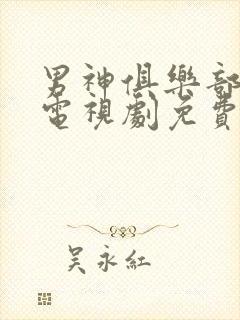 男神俱樂部
電視劇免費
吳永紅